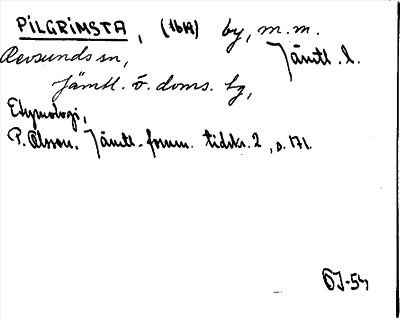 PILGRIMSTA, (1614) by, m.m.
Revsunds sn, Jämtl. l.
Jämtl. ö. doms. hg,
Etymologi,
P. Olsson. Jämtl. fornm. tidskr. 2, s. 171.
OJ-54